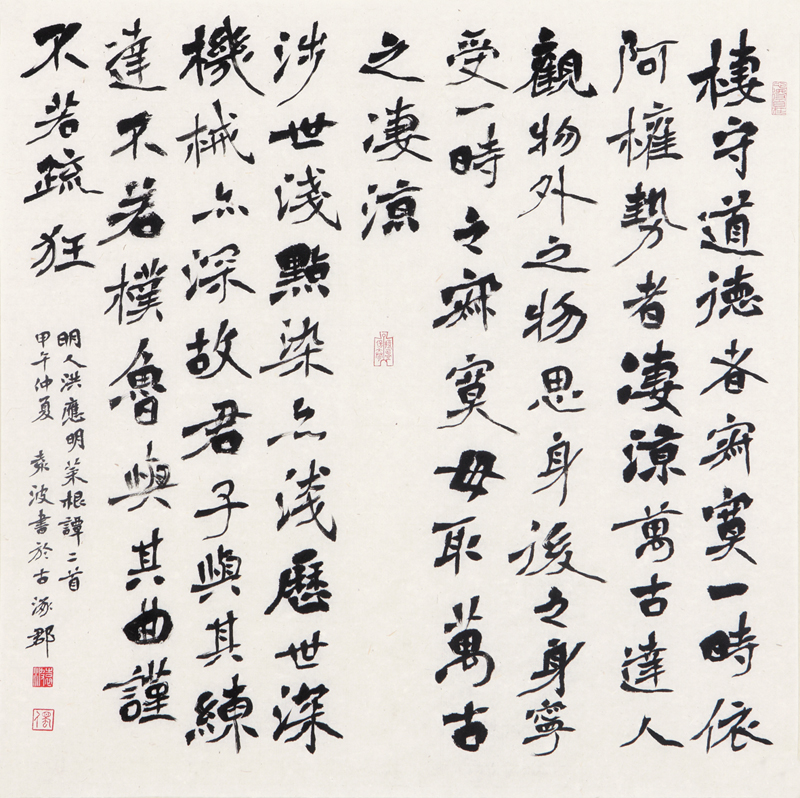 棲守道德者寂寞一時依
阿權勢者凄涼萬古達人
觀物外之物思身後之身寧
受一時之寂寞毋取萬古
之凄涼
涉世淺點染亦淺歷世深
機械亦深故君子與其練
達不若樸魯與其曲謹
不若疏狂
明人洪應明菜根譚二首
甲午仲夏 袁波書於古涿郡